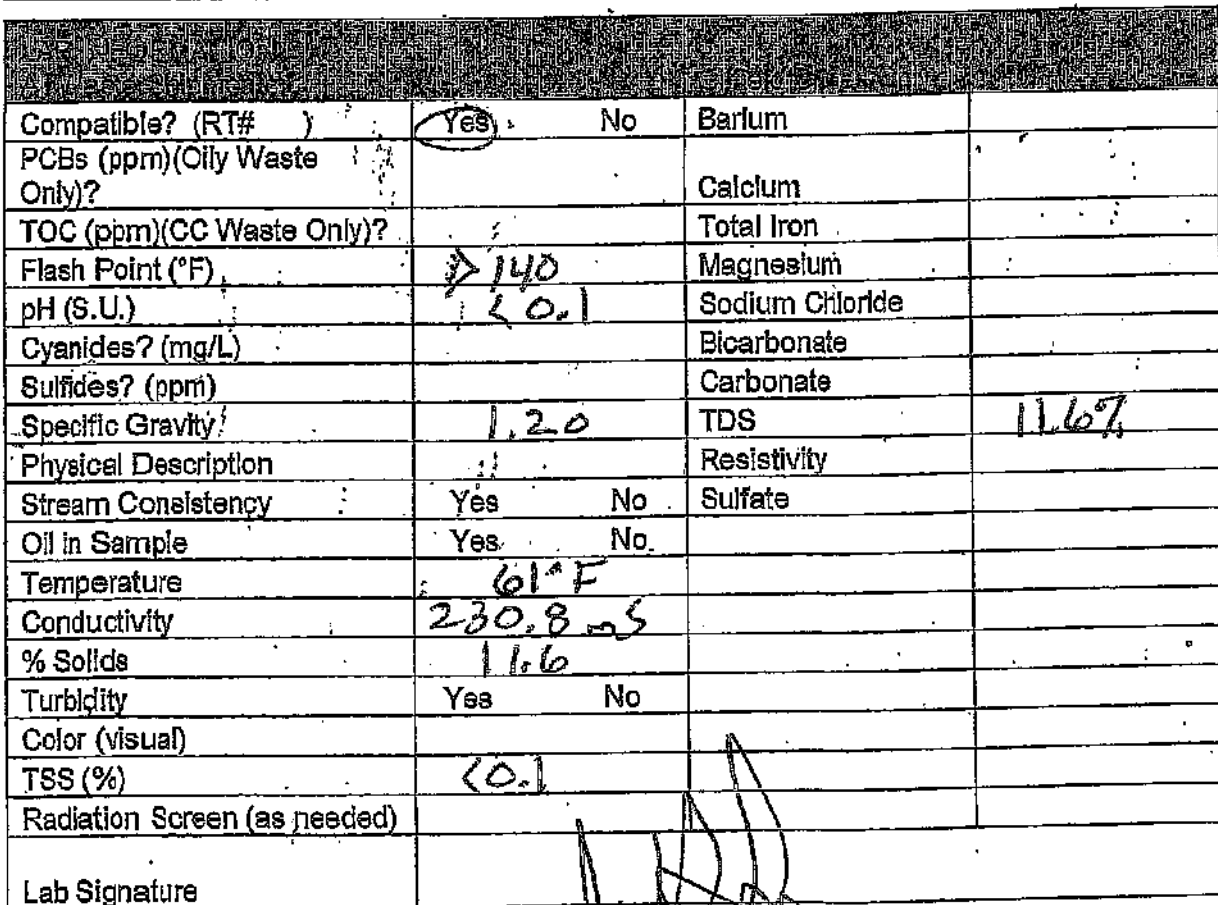 LAB INFORMATION
Compatible? (RT# ) Yes No Barium
PCBs (ppm)(Oily Waste
Only)? Calcium
TOC (ppm)(CC Waste Only)? Total Iron
Flash Point (°F) > 140 Magnesium
pH (S.U.) < 0.1 Sodium Chloride
Cyanides? (mg/L) Bicarbonate
Sulfides? (ppm) Carbonate
Specific Gravity 1.20 TDS 11.6%
Physical Description Resistivity
Stream Consistency Yes No Sulfate
Oil in Sample Yes No
Temperature 61°F
Conductivity 230.8 mS
% Solids 11.6
Turbidity Yes No
Color (visual)
TSS (%) <0.1
Radiation Screen (as needed)
Lab Signature